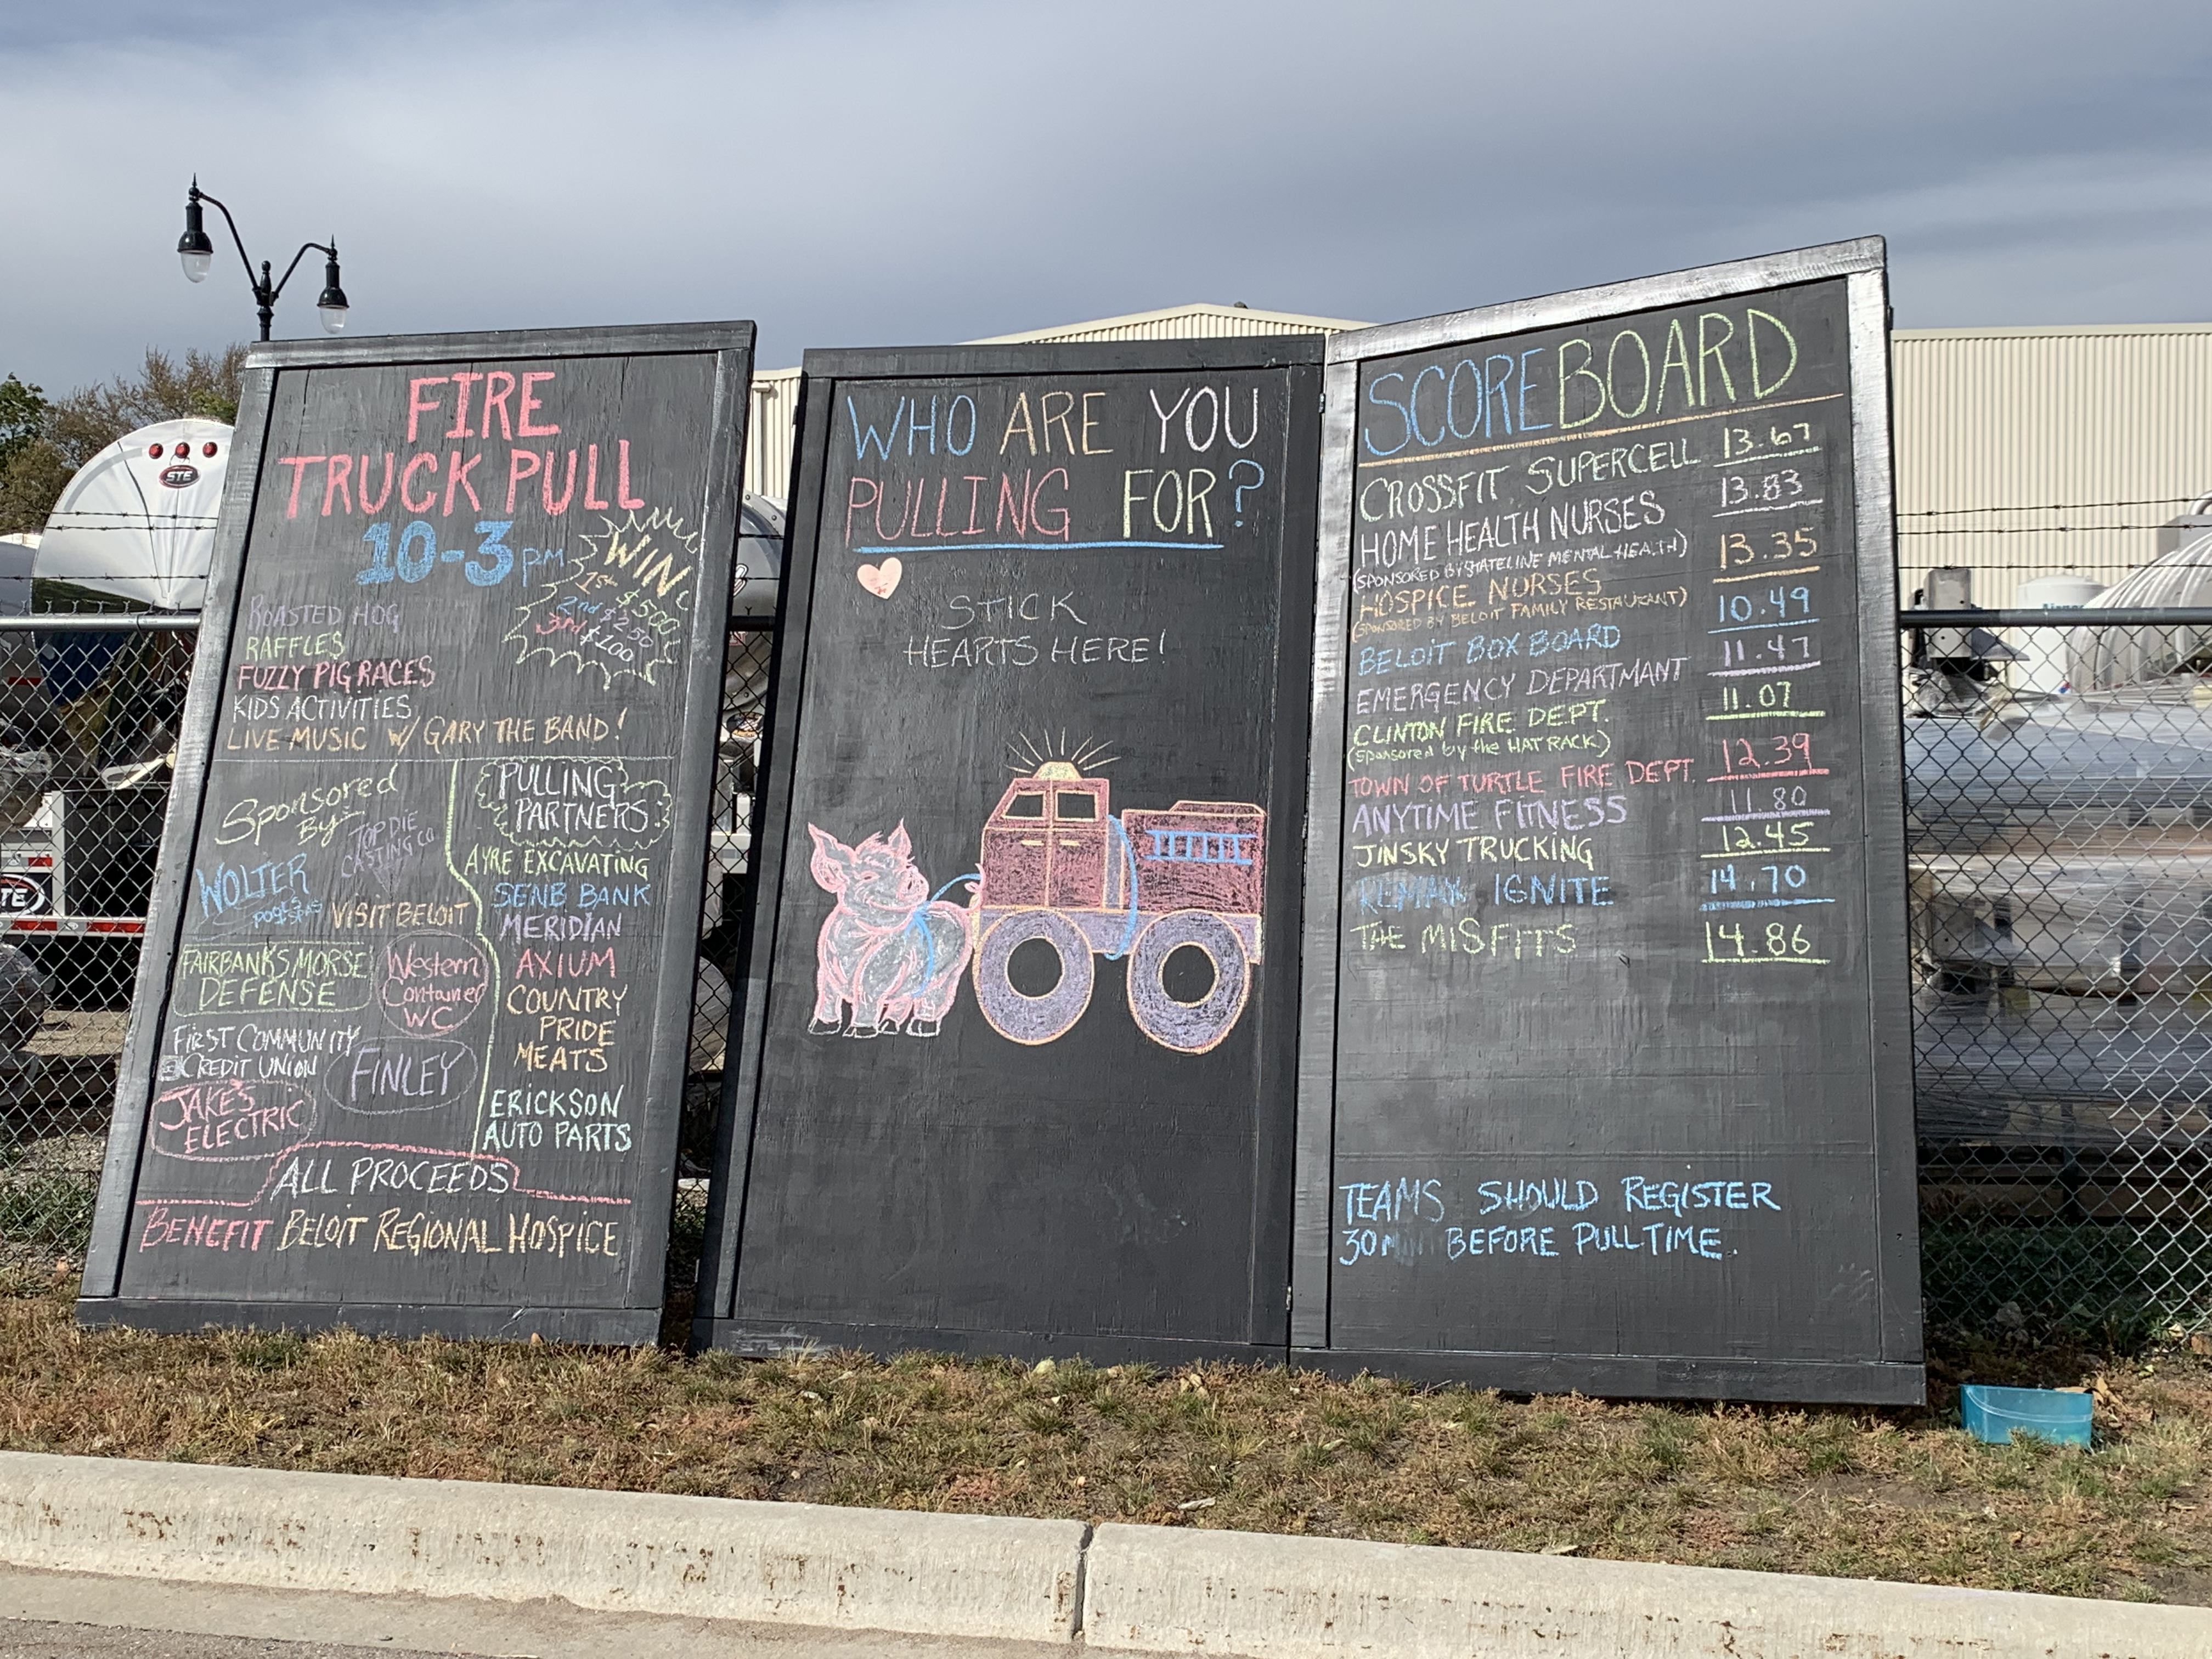 FIRE
TRUCK PULL
10-3 pm
WIN
1st $500
2nd $250
3rd $100
ROASTED HOG
RAFFLES
FUZZY PIG RACES
KIDS ACTIVITIES
LIVE MUSIC W/ GARY THE BAND!
Sponsored
By:
TOP DIE
CASTING CO.
WOLTER
pools
spas
VISIT BELOIT
FAIRBANKS MORSE
DEFENSE
Western
Container
WC
FIRST COMMUNITY
CREDIT UNION
FINLEY
JAKE'S
ELECTRIC
PULLING
PARTNERS
AYRE EXCAVATING
SENB BANK
MERIDIAN
AXIUM
COUNTRY
PRIDE
MEATS
ERICKSON
AUTO PARTS
ALL PROCEEDS
BENEFIT BELOIT REGIONAL HOSPICE
WHO ARE YOU
PULLING FOR?
STICK
HEARTS HERE!
SCOREBOARD
CROSSFIT SUPERCELL 13.67
HOME HEALTH NURSES 13.83
(SPONSORED BY STATELINE MENTAL HEALTH)
HOSPICE NURSES 13.35
(SPONSORED BY BELOIT FAMILY RESTAURANT)
BELOIT BOX BOARD 10.49
EMERGENCY DEPARTMANT 11.47
CLINTON FIRE DEPT. 11.07
(sponsored by the HAT RACK)
TOWN OF TURTLE FIRE DEPT. 12.39
ANYTIME FITNESS 11.80
JINSKY TRUCKING 12.45
REMAX IGNITE 14.70
THE MISFITS 14.86
TEAMS SHOULD REGISTER
30 MIN BEFORE PULL TIME.
STE
STE